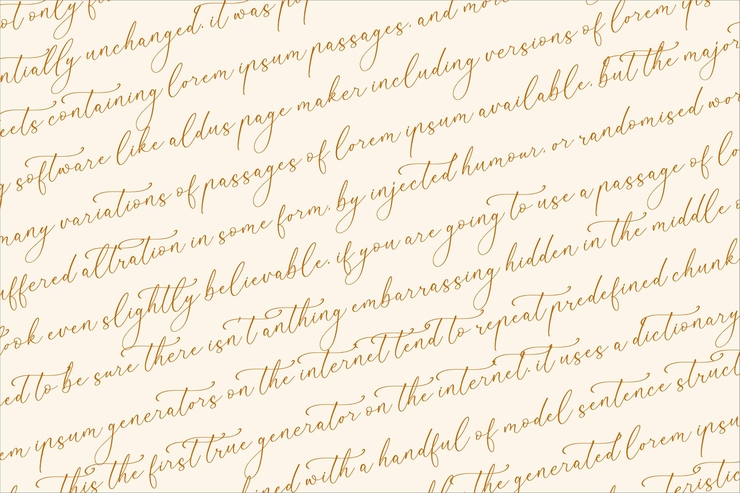 not only
ntially unchanged. it was
eets containing lorem ipsum passages. and more
software like aldus page maker including versions of lorem ips
many variations of passages of lorem ipsum available. but the major
uffered altration in some form. by injected humour. or randomised wor
look even slightly believable. if you are going to use a passage of lo
ed to be sure there isn't anthing embarrassing hidden in the middle o
em ipsum generators on the internet tend to repeat predefined chunk
this the first true generator on the internet. it uses a dictionary
ined with a handful of model sentence struct
the generated lorem ipsu
teristic